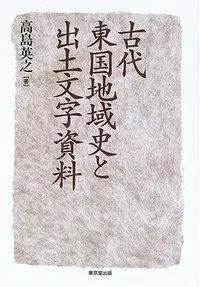 古代
東国地域史と
出土文字資料
高島英之[著]
東京堂出版